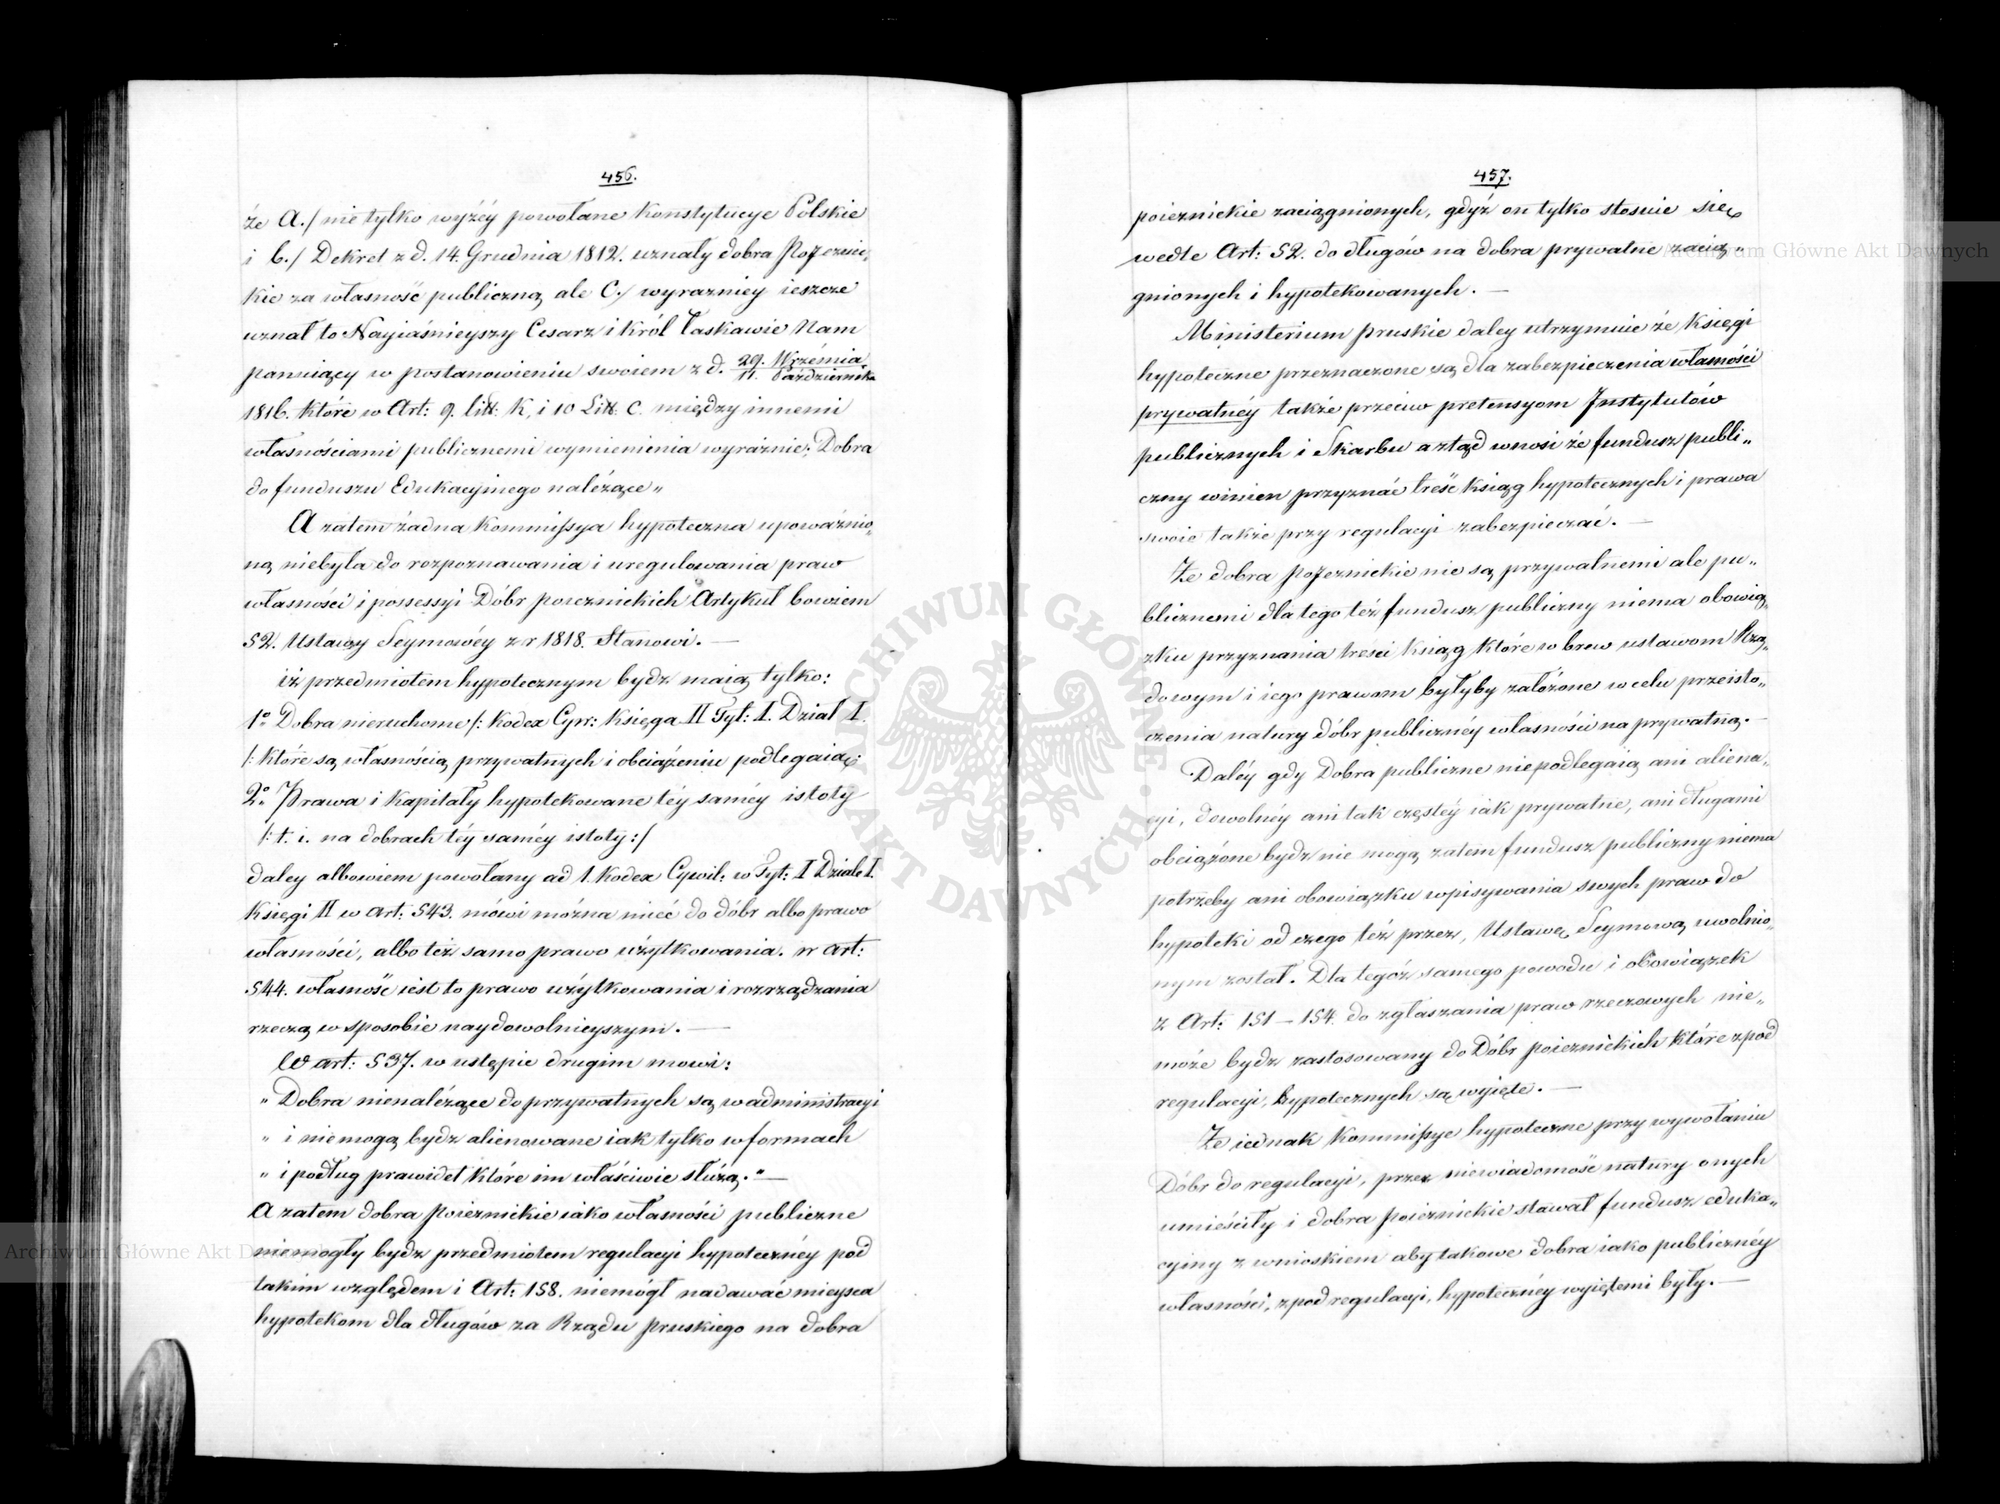 456.
że A./ nie tylko wyżéy powołane Konstytucye Polskie
i B./ Dekret z d. 14. Grudnia 1812. uznały dobra Pojezuic„
kie za własność publiczną ale C./ wyrazniey ieszcze
uznał to Nayiaśnieyszy Cesarz i Król Łaskawie Nam
panuiący w postanowieniu swoiem z d. 29. Września / 11. Października
1816. które w Art: 9. litt: K, i 10 Litt. C. między innemi
własnościami publicznemi wymienienia wyraźnie; Dobra
do funduszu Edukacyinego należące„
A zatem żadna Kommissya hypoteczna upoważnio„
ną niebyła do rozpoznawania i uregulowania praw
własności i possessyi Dóbr poiezuickich Artykuł bowiem
52. Ustawy Seymowéy z r 1818. Stanowi. —
iż przedmiotem hypotecznym bydz maią tylko:
1° Dobra nieruchome /: Kodex Cyw: Księga II Tyt: I. Dział I.
/: które są własnością prywatnych i obciążeniu podlegaią;
2° Prawa i Kapitały hypotekowane téy saméy istoty
/: t. i. na dobrach téy saméy istoty :/
daley albowiem powołany ad 1. Kodex Cywil: w Tyt: I Dziale I.
Księgi II w art: 543. mówi można mieć do dóbr albo prawo
własności, albo też samo prawo użytkowania. w art:
544. własność iest to prawo użytkowania i rozrządzania
rzeczą w sposobie naydowolnieyszym. —
W art: 537. w ustępie drugim mowi:
„ Dobra nienależące do prywatnych są w administracyi
„ i niemogą bydz alienowane iak tylko w formach
„ i podług prawideł które im właściwie służą. „ —
A zatem dobra poiezuickie iako własności publiczne
niemogły bydz przedmiotem regulacyi hypotecznéy pod
takim względem i Art: 158. niemógł nadawać mieysca
hypotekom dla długów za Rządu pruskiego na dobra
457.
poiezuickie zaciągnionych, gdyż on tylko stosuie się
wedle Art: 52. do długów na dobra prywatne zacią„
gnionych i hypotekowanych. —
Ministerium pruskie daley utrzymuie że Księgi
hypoteczne przeznaczone są dla zabezpieczenia własności
prywatnéy także przeciw pretensyom Instytutów
publicznych i Skarbu a ztąd wnosi że fundusz publi„
czny winien przyznać treść Ksiąg hypotecznych i prawa
swoie także przy regulacyi zabezpieczać. —
Że dobra pojezuickie nie są prywatnemi ale pu„
blicznemi dla tego też fundusz publiczny niema obowią„
zku przyznania treści Ksiąg które wbrew ustawom Rzą„
dowym i iego prawom byłyby założone w celu przeisto„
czenia natury dóbr publicznéy własności na prywatną. —
Daléy gdy Dobra publiczne niepodlegaią ani aliena„
cyi, dowolnéy ani tak częstéy iak prywatne, ani długami
obciążone bydz nie mogą zatem fundusz publiczny niema
potrzeby ani obowiązku wpisywania swych praw do
hypoteki od czego téż przez, Ustawę Seymową uwolnio„
nym został. Dla tegóż samego powodu i obowiązek
z Art: 151 – 154. do zgłaszania praw rzeczowych nie„
może bydz zastosowany do Dóbr poiezuickich które z pod
regulacyi, hypotecznych są wyięte. —
Że iednak Kommissye hypoteczne przy wywołaniu
Dóbr do regulacyi, przez niewiadomość natury onych
umieściły i dobra poiezuickie stawał fundusz eduka„
cyiny z wnioskiem aby takowe dobra iako publicznéy
własności, z pod regulacyi, hypotecznéy wyiętemi były. —
Archiwum Główne Akt Dawnych
Archiwum Główne Akt D
ARCHIWUM GŁÓWNE AKT DAWNYCH